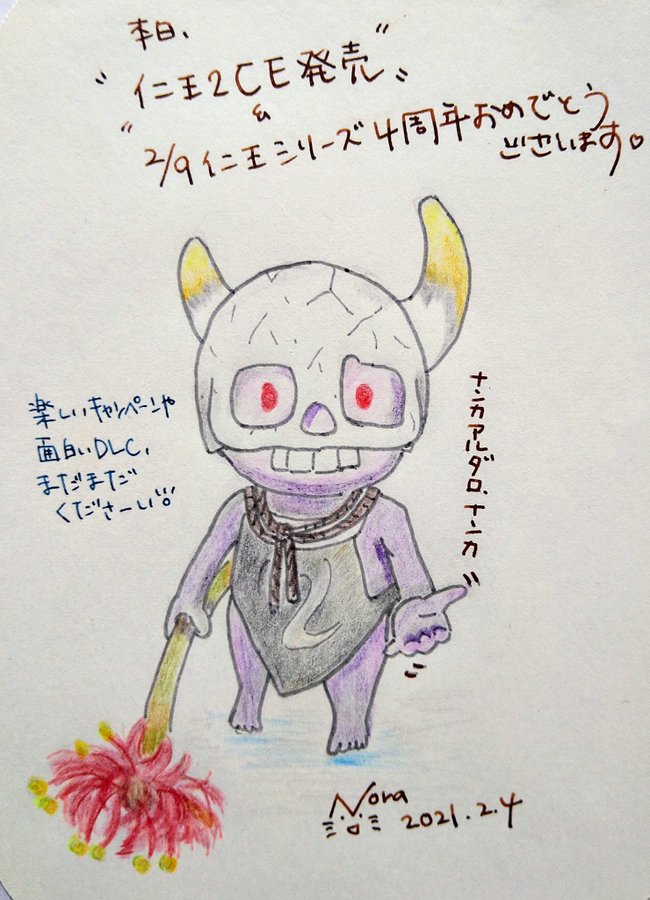 本日、
"仁王2CE発売"
&
"2/9仁王シリーズ4周年おめでとう
ございます♡
楽しいキャンペーンや
面白いDLC、
まだまだ
くださーい!!
ナンカアルダロ、ナンカ
Nora
2021.2.4